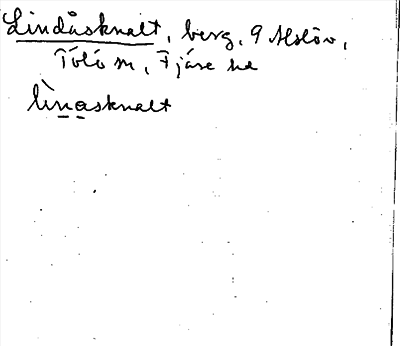 Lindåsknalt, berg, 9 Alslöv,
Tölö sn, Fjäre hd
lìnasknalt